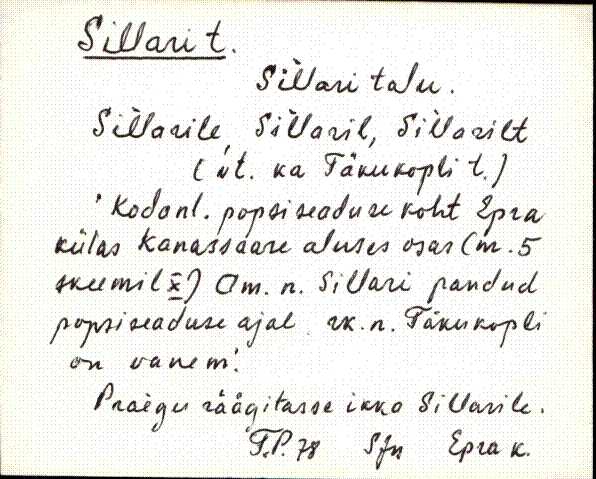 Sillari t.
Sillari talu.
Sillarile Sillaril, Sillarilt
(üt. ka Täkukopli t.)
' Kodanl. popsiseaduse koht Epra
külas Kanassaare aluses osas (nr. 5
skeemil x) Am. n. Sillari pandud
popsiseaduse ajal rk. n. Täkukopli
on vanem'.
Praegu räägitasse ikko Sillarile.
T.P. 78 Sjn Epra k.